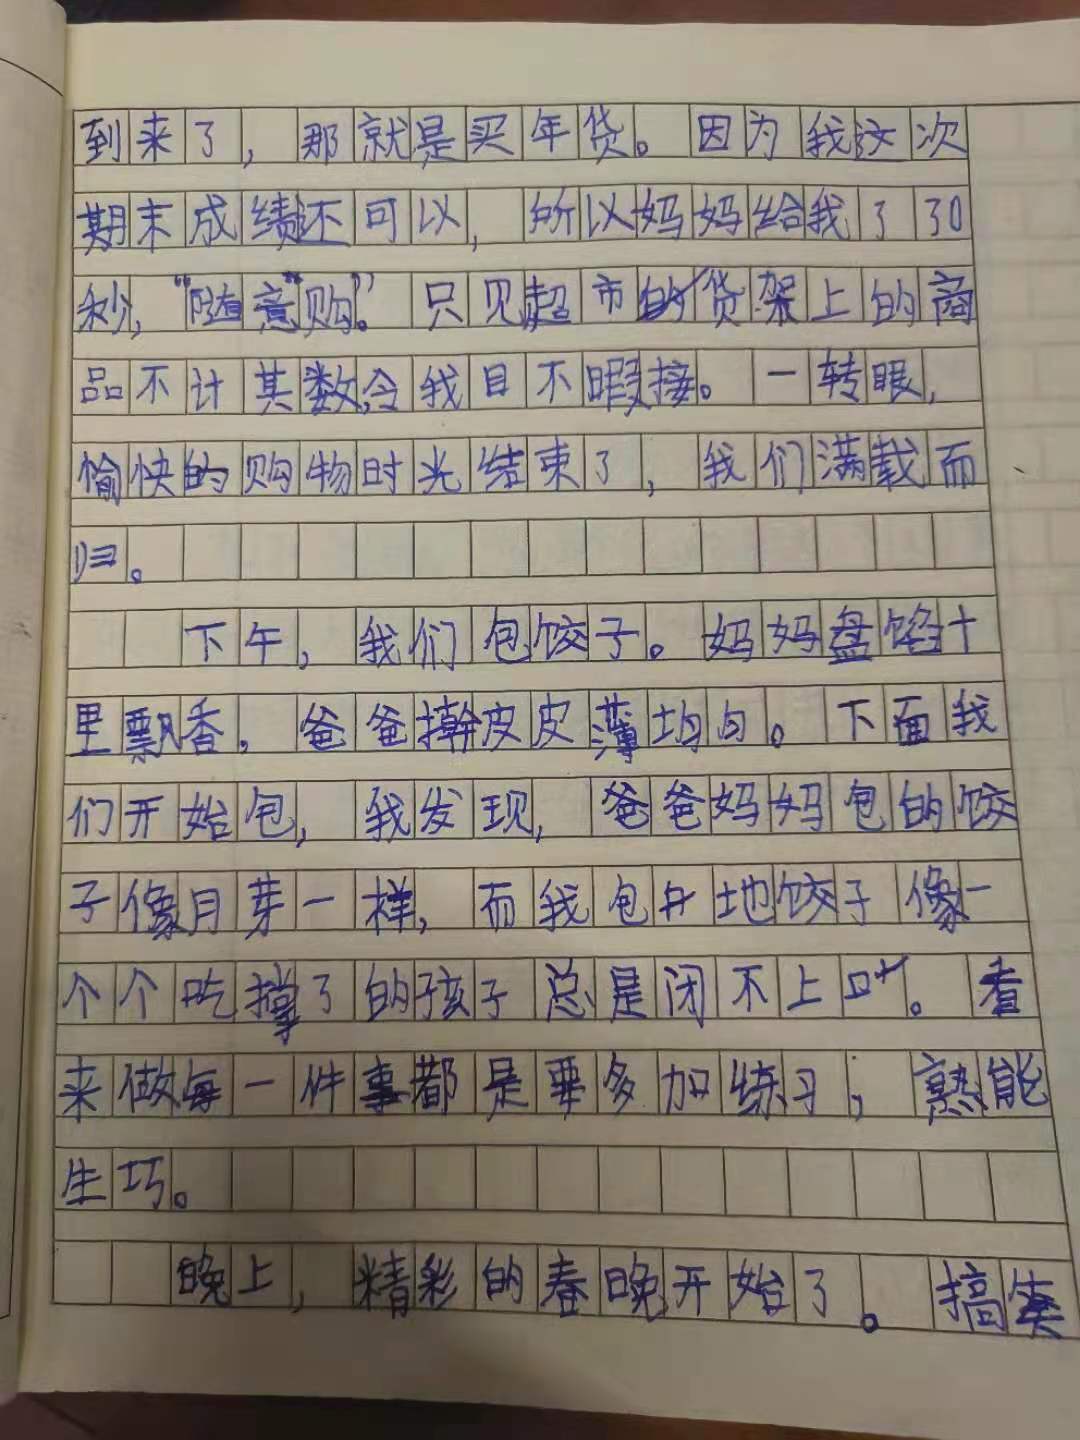 到来了，那就是买年货。因为我这次
期末成绩还可以，所以妈妈给我了30
秒，“随意”购”。只见超市的货架上的商
品不计其数，令我目不暇接。一转眼，
愉快的购物时光结束了，我们满载而
归。
下午，我们包饺子。妈妈盘馅十
里飘香，爸爸擀皮皮薄均匀。下面我
们开始包，我发现，爸爸妈妈包的饺
子像月芽一样，而我包地饺子像一
个个吃撑了的孩子总是闭不上口。看
来做每一件事都是要多加练习；熟能
生巧。
晚上，精彩的春晚开始了。搞笑